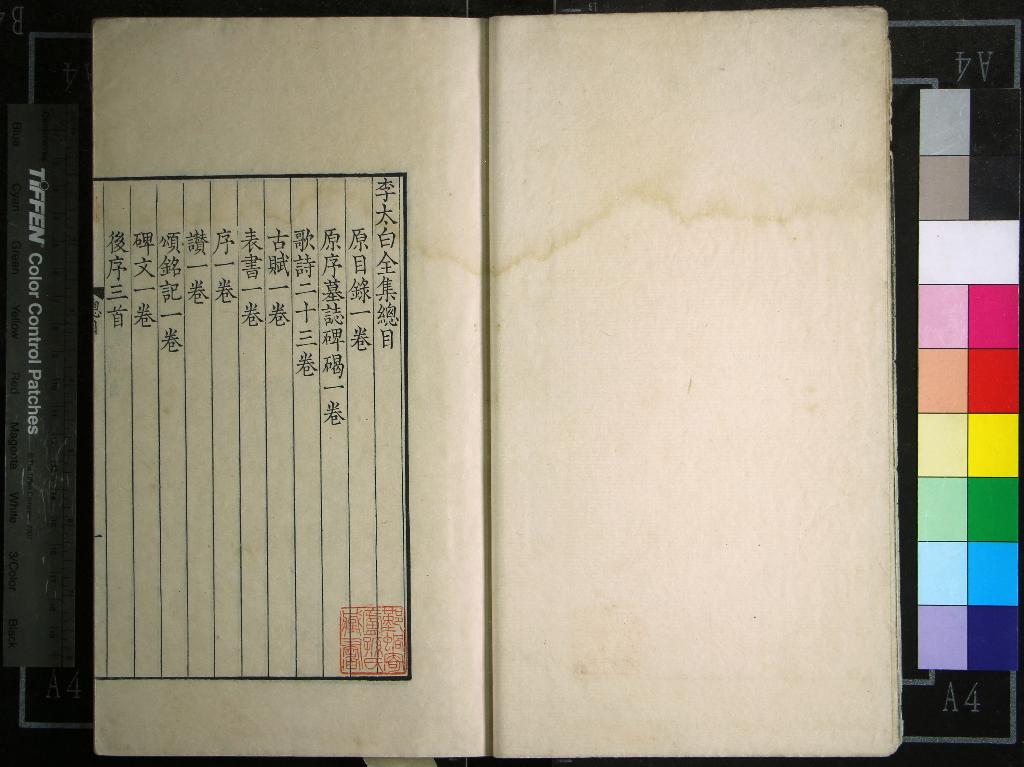 李太白全集總目
原目錄一卷
原序墓誌碑碣一卷
歌詩二十三卷
古賦一卷
表書一卷
序一卷
讚一卷
頌銘記一卷
碑文一卷
後序三首
總目
一
TIFFEN Color Control Patches
Blue Cyan Green Yellow Red Magenta White 3/Color Black
A4
A4
A4
A4
B